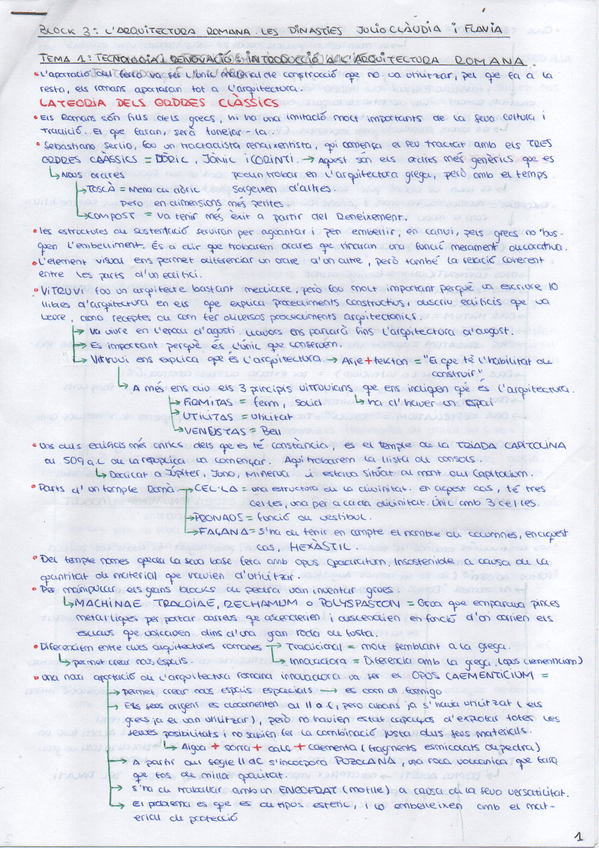 BLOCK 3: L'ARQUITECTURA ROMANA. LES DINASTIES JULIOCLÀUDIA i FLÀVIA
TEMA 1: TECNOLOGIA I RENOVACIÓ: INTRODUCCIÓ A L'ARQUITECTURA ROMANA.
• L'aportació del ferro va ser l'únic material de construcció que no va utilitzar, pel que fa a la
resta, els romans aportaran tot a l'arquitectura.
LA TEORIA DELS ORDRES CLÀSSICS
• Els Romans són fills dels grecs, hi ha una imitació molt importants de la seva cultura i
tradició. El que faran, serà fusionar-la.
• Sebastiano Serlio, fou un tractadista renaixentista, qui comença el seu tractat amb els TRES
ORDRES CLÀSSICS = DÒRIC, JÒNIC i CORINTI. → Aquest són els ordres més genèrics que es
↳ Nous ordres poden trobar en l'arquitectura grega, però amb el temps
→ TOSCÀ = Menau dòric sorgeixen d'altres.
Però en dimensions més petites.
→ COMPOST = va tenir més èxit a partir del Reneixement.
• Les estructures de sustentació serviran per aguantar i per embellir, en canvi, pels grecs no bus-
quen l'embelliment. És a dir que trobarem ordres que tindran una funció merament decorativa.
• L'element visual ens permet diferenciar un ordre d'un altre, però també la relació coherent
entre les parts d'un edifici.
• VITRUVI fou un arquitecte bastant mediocre, però fou molt important perquè va escriure 10
llibres d'arquitectura en els que explica procediments constructius, descriu edificis que va
veure, dona receptes de com fer diversos procediments arquitectònics.
→ Va viure en l'època d'August. Llavors ens parlarà fins l'arquitectura d'August.
→ És important perquè és l'únic que conservem.
→ Vitruvi ens explica què és l'arquitectura → Arje + tekton = "El que té l'habilitat de
construir"
↳ A més ens diu els 3 principis vitruvians que ens indiquen què és l'arquitectura.
→ FIRMITAS = ferm, sòlid ↳ ha d'haver un espai
→ UTILITAS = utilitat
→ VENUSTAS = Bell
• Un dels edificis més antics dels que es té constància, és el temple de la TRÍADA CAPITOLINA
del 509 a.C de la república va començar. Aquí trobarem la llista de cònsols.
↳ Dedicat a Júpiter, Juno, Minerva i estava situat al mont del Capitolium.
• Parts d'un temple Romà → CEL·LA = una estructura de la divinitat. En aquest cas, té tres
cel·les, una per a cada divinitat. Únic amb 3 cel·les.
→ PRONAOS = funció de vestíbul.
→ FAÇANA = s'ha de tenir en compte el nombre de columnes, en aquest
cas, HEXÀSTIL.
• Del temple només queda la seva base feta amb opus quadratum, insostenible a causa de la
quantitat de material que havien d'utilitzar.
• Per manipular els grans blocks de pedra van inventar grues.
↳ MACHINAE TRACTORIAE, RECHAMUM o POLYSPASTON = Grua que emparava pinces
metal·liques per portar carreus que ascendien i descendien en funció d'on carrien els
esclaus que utilitzaven dins d'una gran roda de fusta.
• Diferencien entre dues arquitectures romanes → Tradicional = molt semblant a la grega.
↳ permet crear nous espais. → Innovadora = Diferència amb la grega. (opus caementicium)
• Una nova aportació de l'arquitectura romana innovadora va ser el OPUS CAEMENTICIUM =
→ permet crear nous espais especials → és com el formigó
→ Els seus orígens es documenten al II a.C, però abans ja s'havia utilitzat (els
grecs ja el van utilitzar), però no havien estat capaços d'explotar totes les
seves possibilitats i no sabien fer la combinació justa dels seus materials.
↳ Aigua + sorra + calç + caementa (fragments esmicolats de pedra)
→ A partir del segle II dC s'incorpora PUZOLANA, una roca volcànica que farà
que fos de millor qualitat.
→ s'ha de treballar amb un ENCOFRAT (motlle) a causa de la seva versatilitat.
→ El problema és que és de tipus estètic, i ho embelleixen amb el mat-
erial de protecció
1